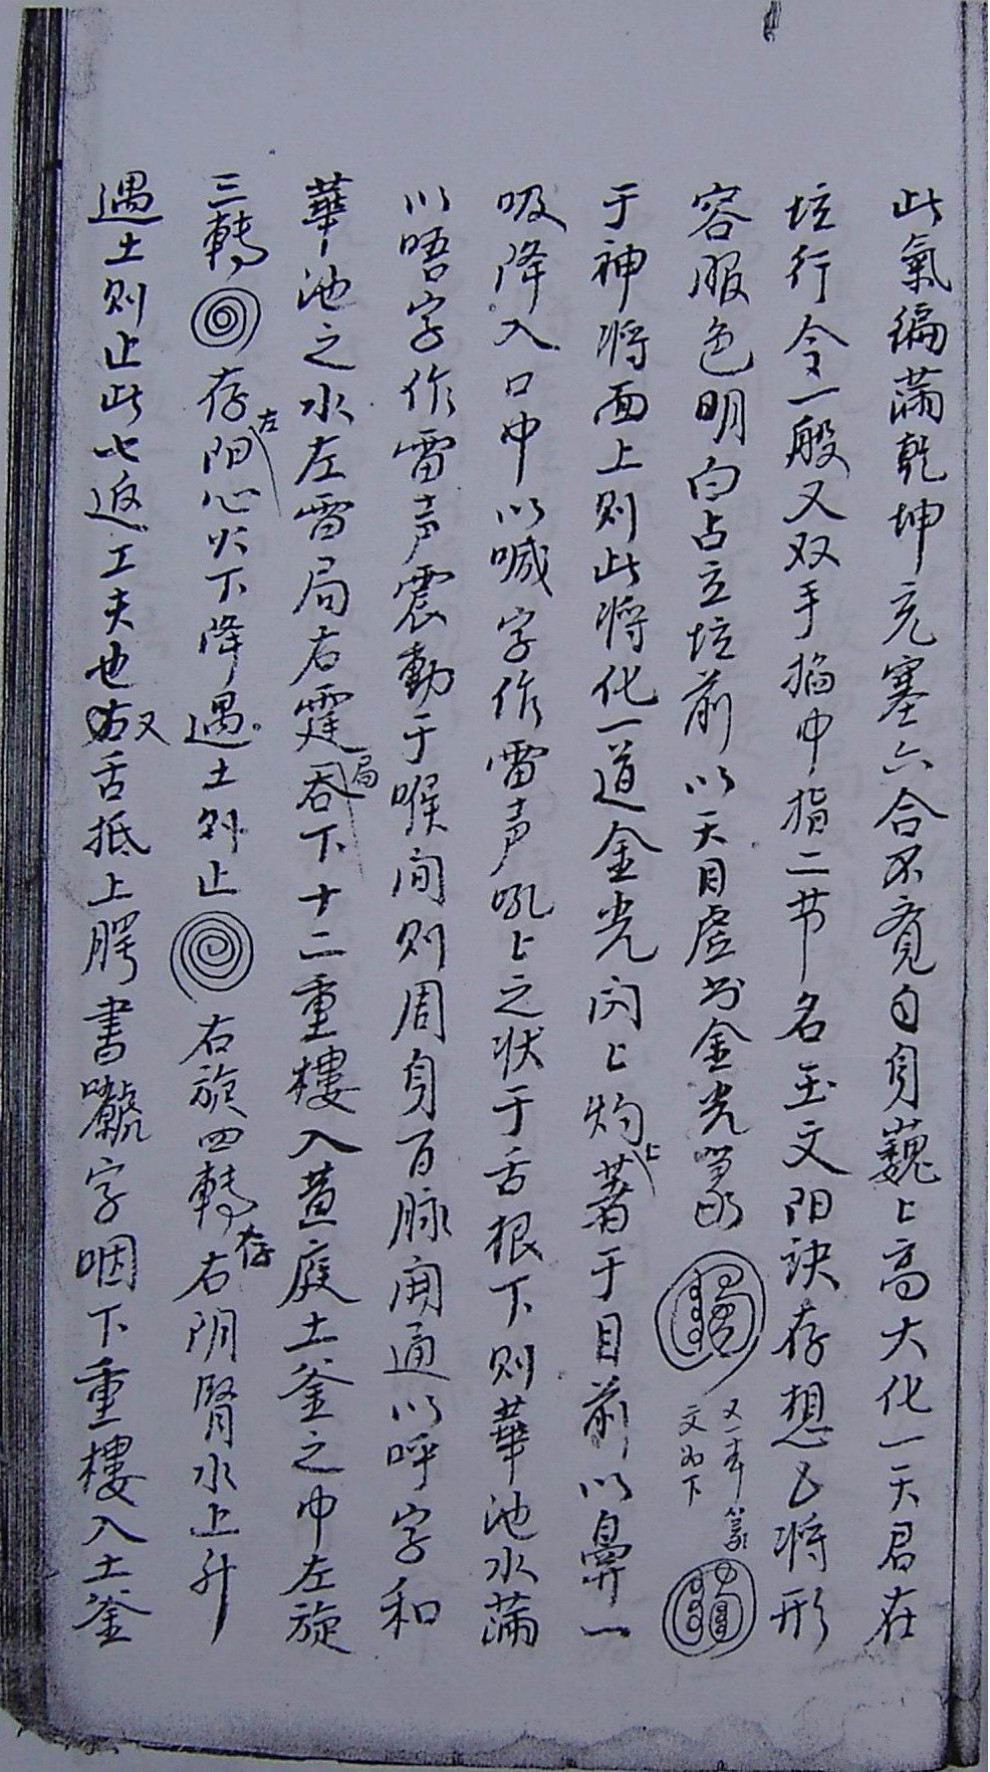 此氣徧滿乾坤充塞六合不覚自身巍〻高大化一天君在
坛行令一般又双手掐中指二节名玉文阳诀存想乙将形
容服色明白占立坛前以天目虚书金光篆 又一本篆文如下
于神将面上则此将化一道金光闪〻灼〻著于目前以鼻一
吸降入口中以喊字作雷声吼〻之状于舌根下则華池水满
以唔字作雷声震動于喉间则周身百脉闻通以呼字和
華池之水左雷局右霆局吞下十二重樓入黄庭土釜之中左旋
三轉 存左阳心火下降遇土则止 右旋四轉存右阴腎水上升
遇土则止此七返工夫也又舌抵上腭書字咽下重樓入土釜